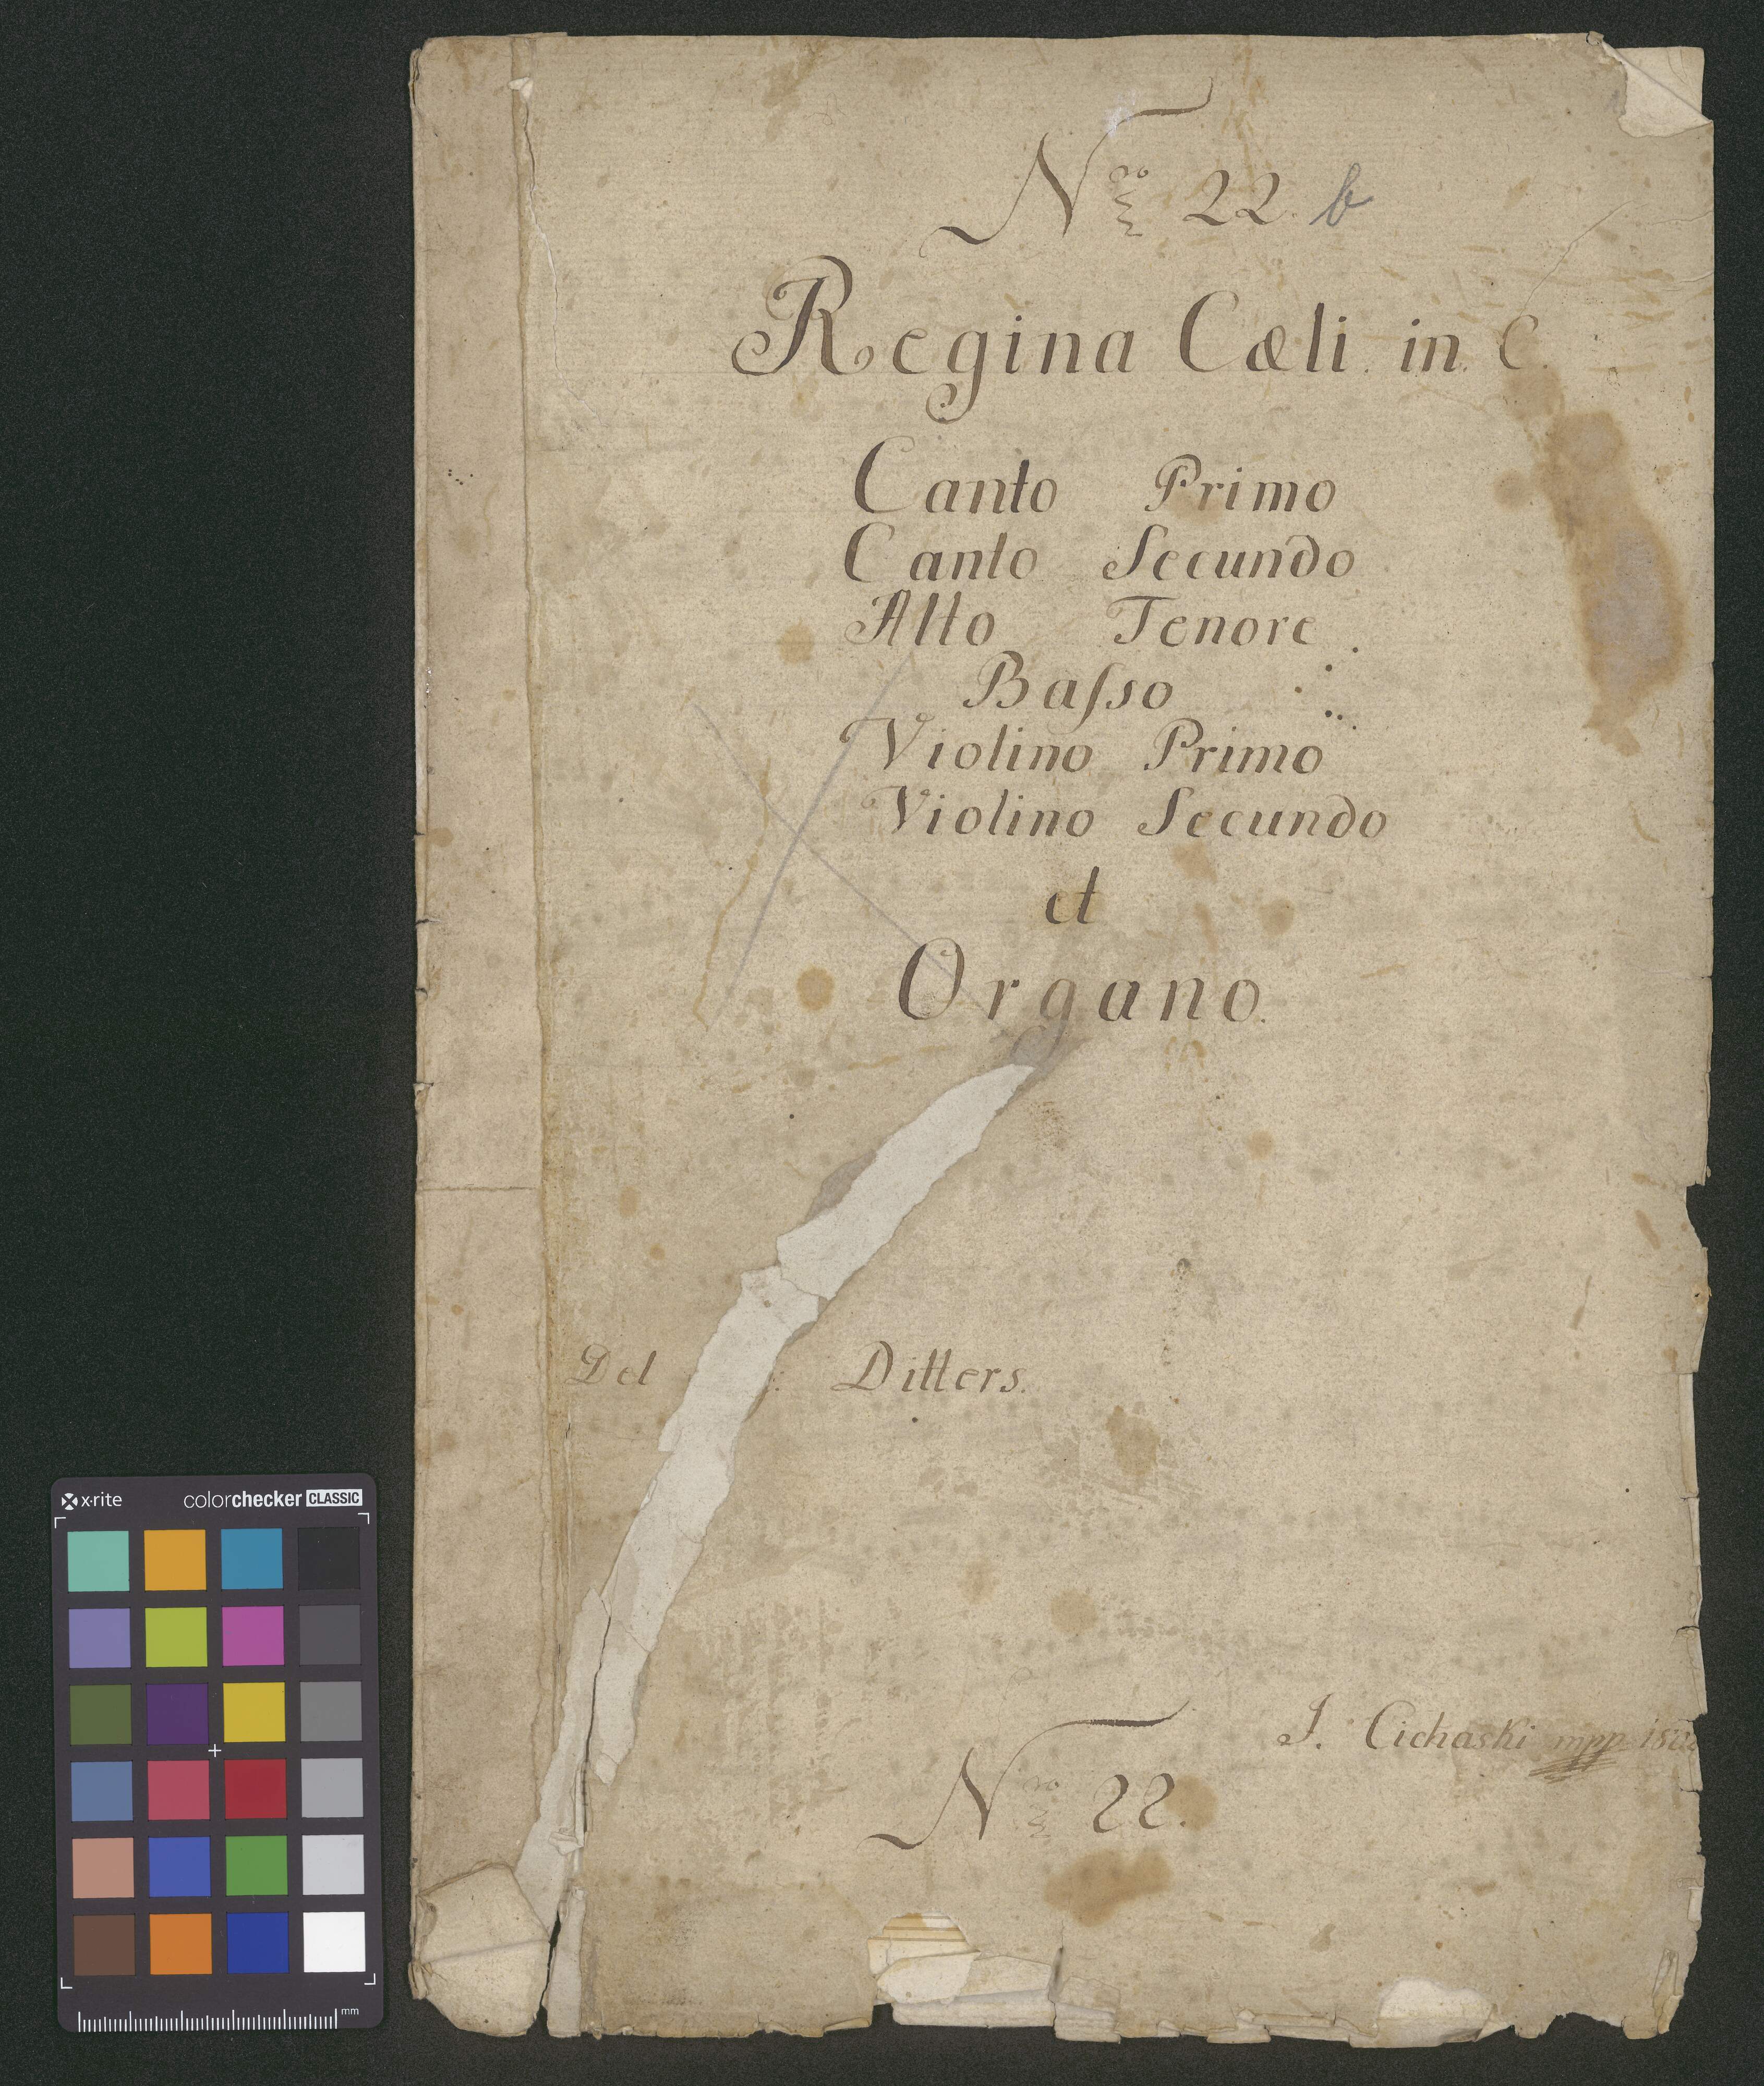 Nro 22. b
Regina Cæli. in. C.
Canto Primo
Canto Secundo
Alto Tenore.
Baſso
Violino Primo
Violino Secundo
et
Organo.
Del Ditters.
J. Cichaski mpp
Nro 22.
x·rite colorchecker CLASSIC
mm